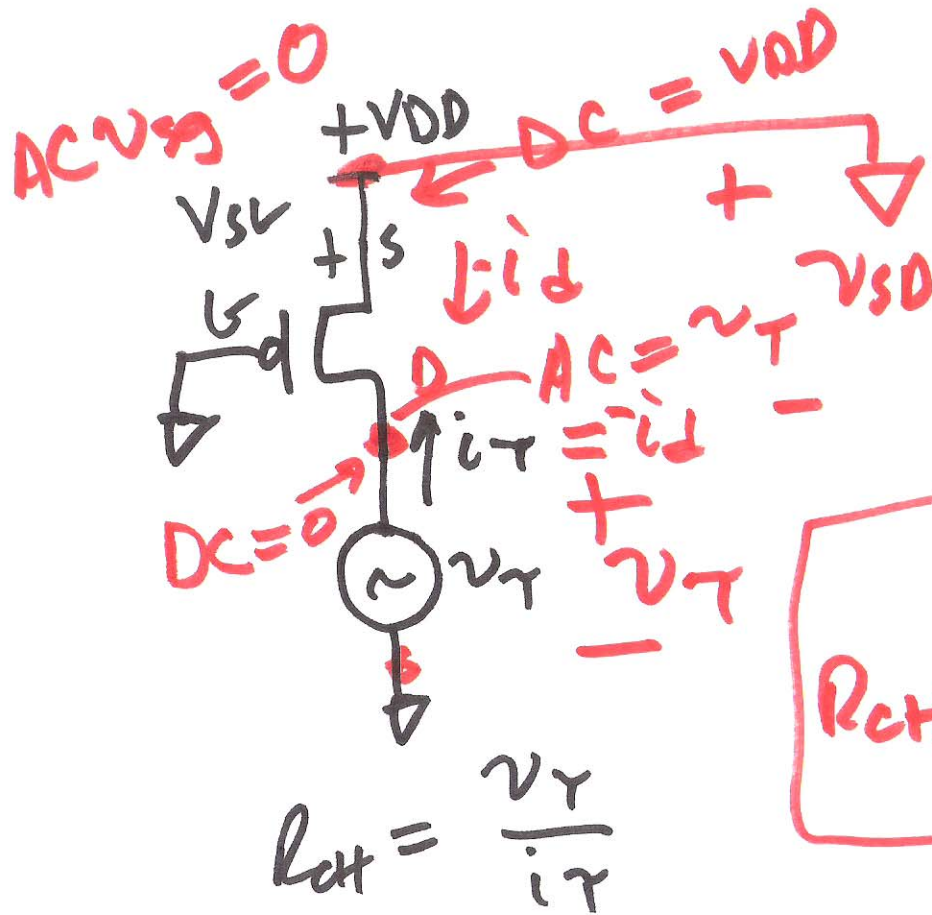 AC vsg = 0
+VDD
DC = VDD
VSG
+ S
+
vSD
-
id
G
D
AC = vT
iT = -id
DC = 0
vT
+
vT
-
RCH
RCH = vT / iT